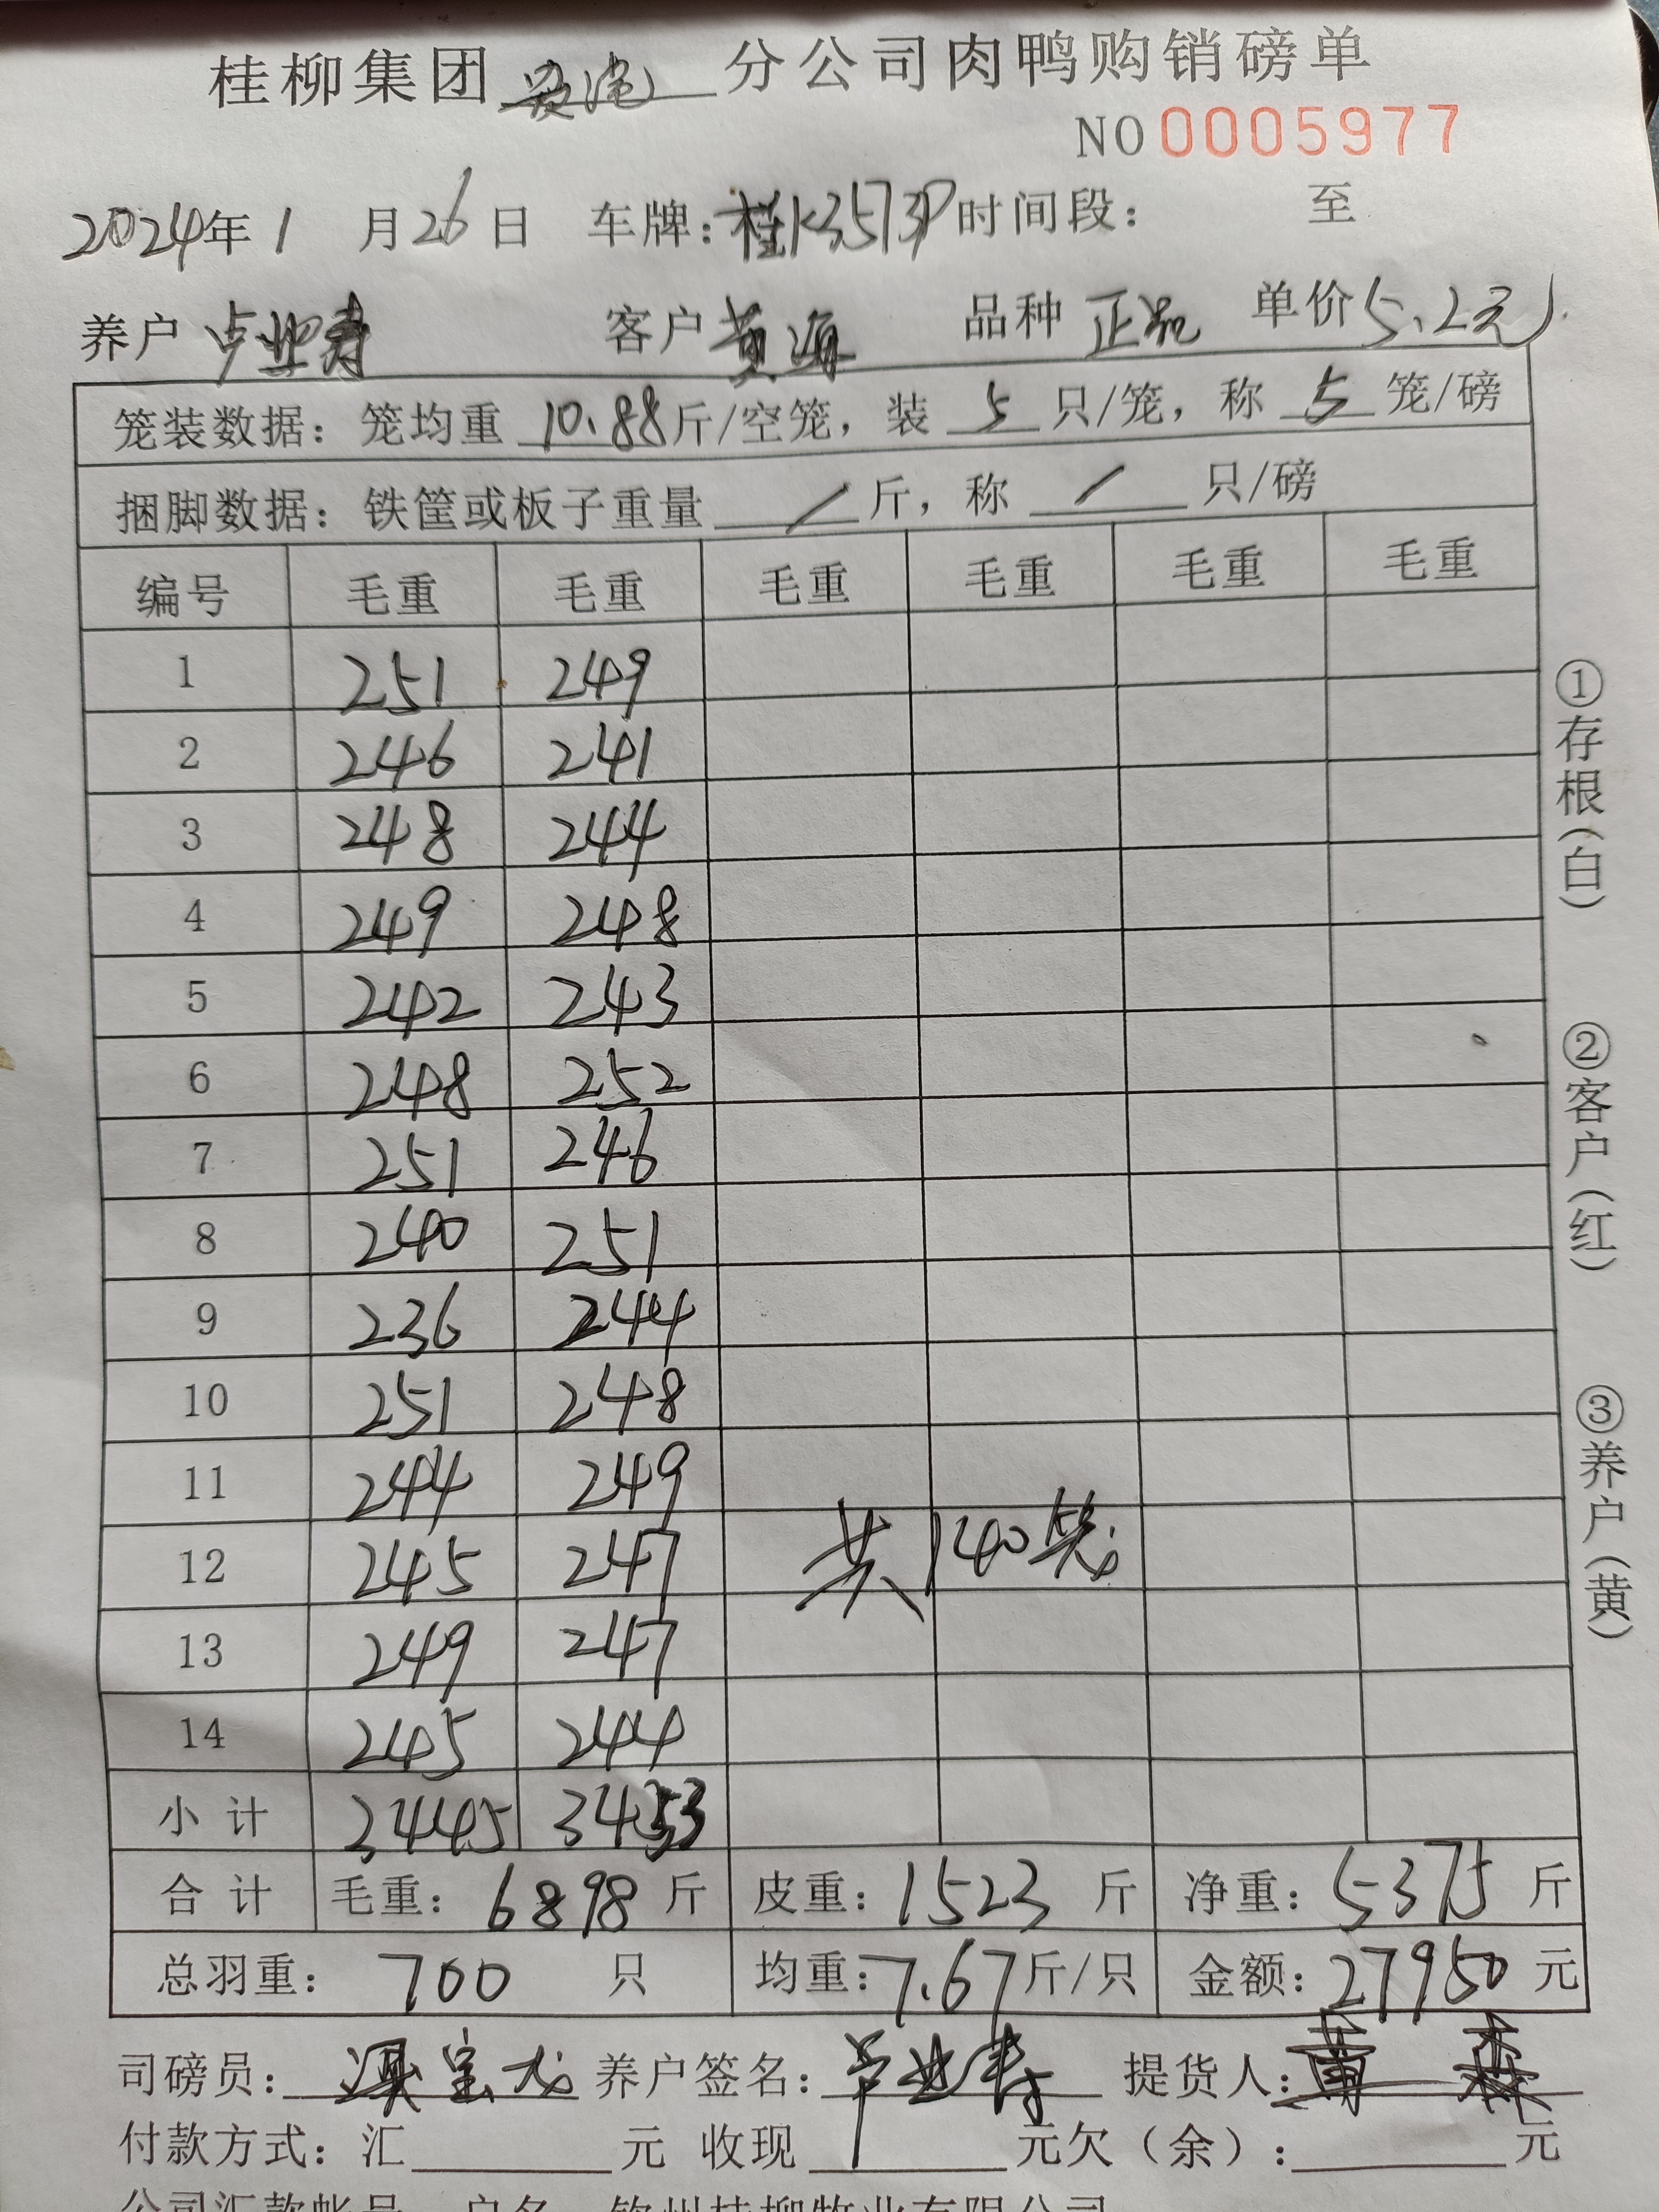 桂柳集团 分公司肉鸭购销磅单
NO 0005977
2024年 1 月 26 日 车牌: 桂K3573P 时间段: 至
养户 卢业寿 客户 黄海 品种 正品 单价 5.2元
笼装数据: 笼均重 10.88 斤/空笼, 装 5 只/笼, 称 5 笼/磅
捆脚数据: 铁筐或板子重量 / 斤, 称 / 只/磅
编号 毛重 毛重 毛重 毛重 毛重 毛重
1 251 249
2 246 241
3 248 244
4 249 248
5 242 243
6 248 252
7 251 246
8 240 251
9 236 244
10 251 248
11 244 249
12 245 247 共140笼
13 249 247
14 245 244
小计 3445 3453
合计 毛重: 6898 斤 皮重: 1523 斤 净重: 5375 斤
总羽重: 700 只 均重: 7.67 斤/只 金额: 27950 元
司磅员: 养户签名: 卢业寿 提货人: 黄 森
付款方式: 汇 元 收现 元欠(余): 元
公司汇款帐号 户名 钦州桂柳牧业有限公司
①存根(白)
②客户(红)
③养户(黄)